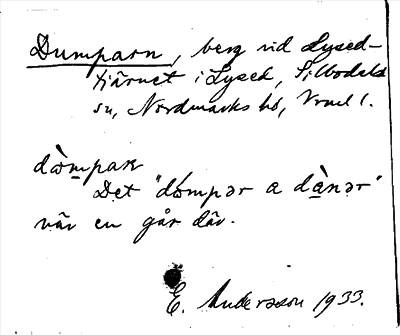 Dumparn, berg vid Lysed-
tjärnet i Lysed, Silbodals
sn, Nordmarks hd, Vrml.
dòmpaɴ
Det "dómpər a dànər"
när en går där.
E. Andersson 1933.